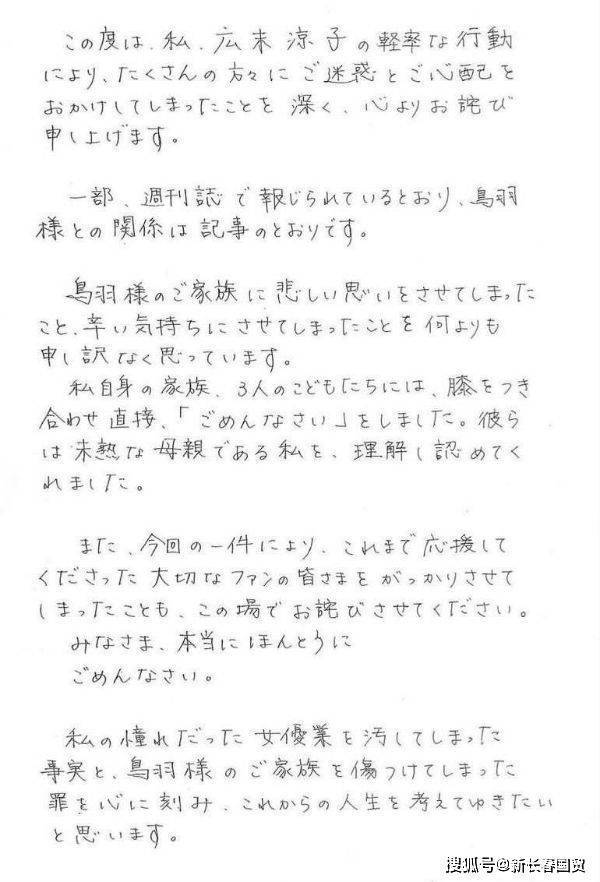 この度は、私、広末涼子の軽率な行動
により、たくさんの方々にご迷惑とご心配を
おかけしてしまったことを深く、心よりお詫び
申し上げます。
一部、週刊誌で報じられているとおり、鳥羽
様との関係は記事のとおりです。
鳥羽様のご家族に悲しい思いをさせてしまった
こと、辛い気持ちにさせてしまったことを何よりも
申し訳なく思っています。
私自身の家族、3人のこどもたちには、膝をつき
合わせ直接、「ごめんなさい」をしました。彼ら
は未熟な母親である私を、理解し認めてく
れました。
また、今回の一件により、これまで応援して
くださった大切なファンの皆さまをがっかりさせて
しまったことも、この場でお詫びさせてください。
みなさま、本当にほんとうに
ごめんなさい。
私の憧れだった女優業を汚してしまった
事実と、鳥羽様のご家族を傷つけてしまった
罪を心に刻み、これからの人生を考えてゆきたい
と思います。
搜狐号@新长春国贸